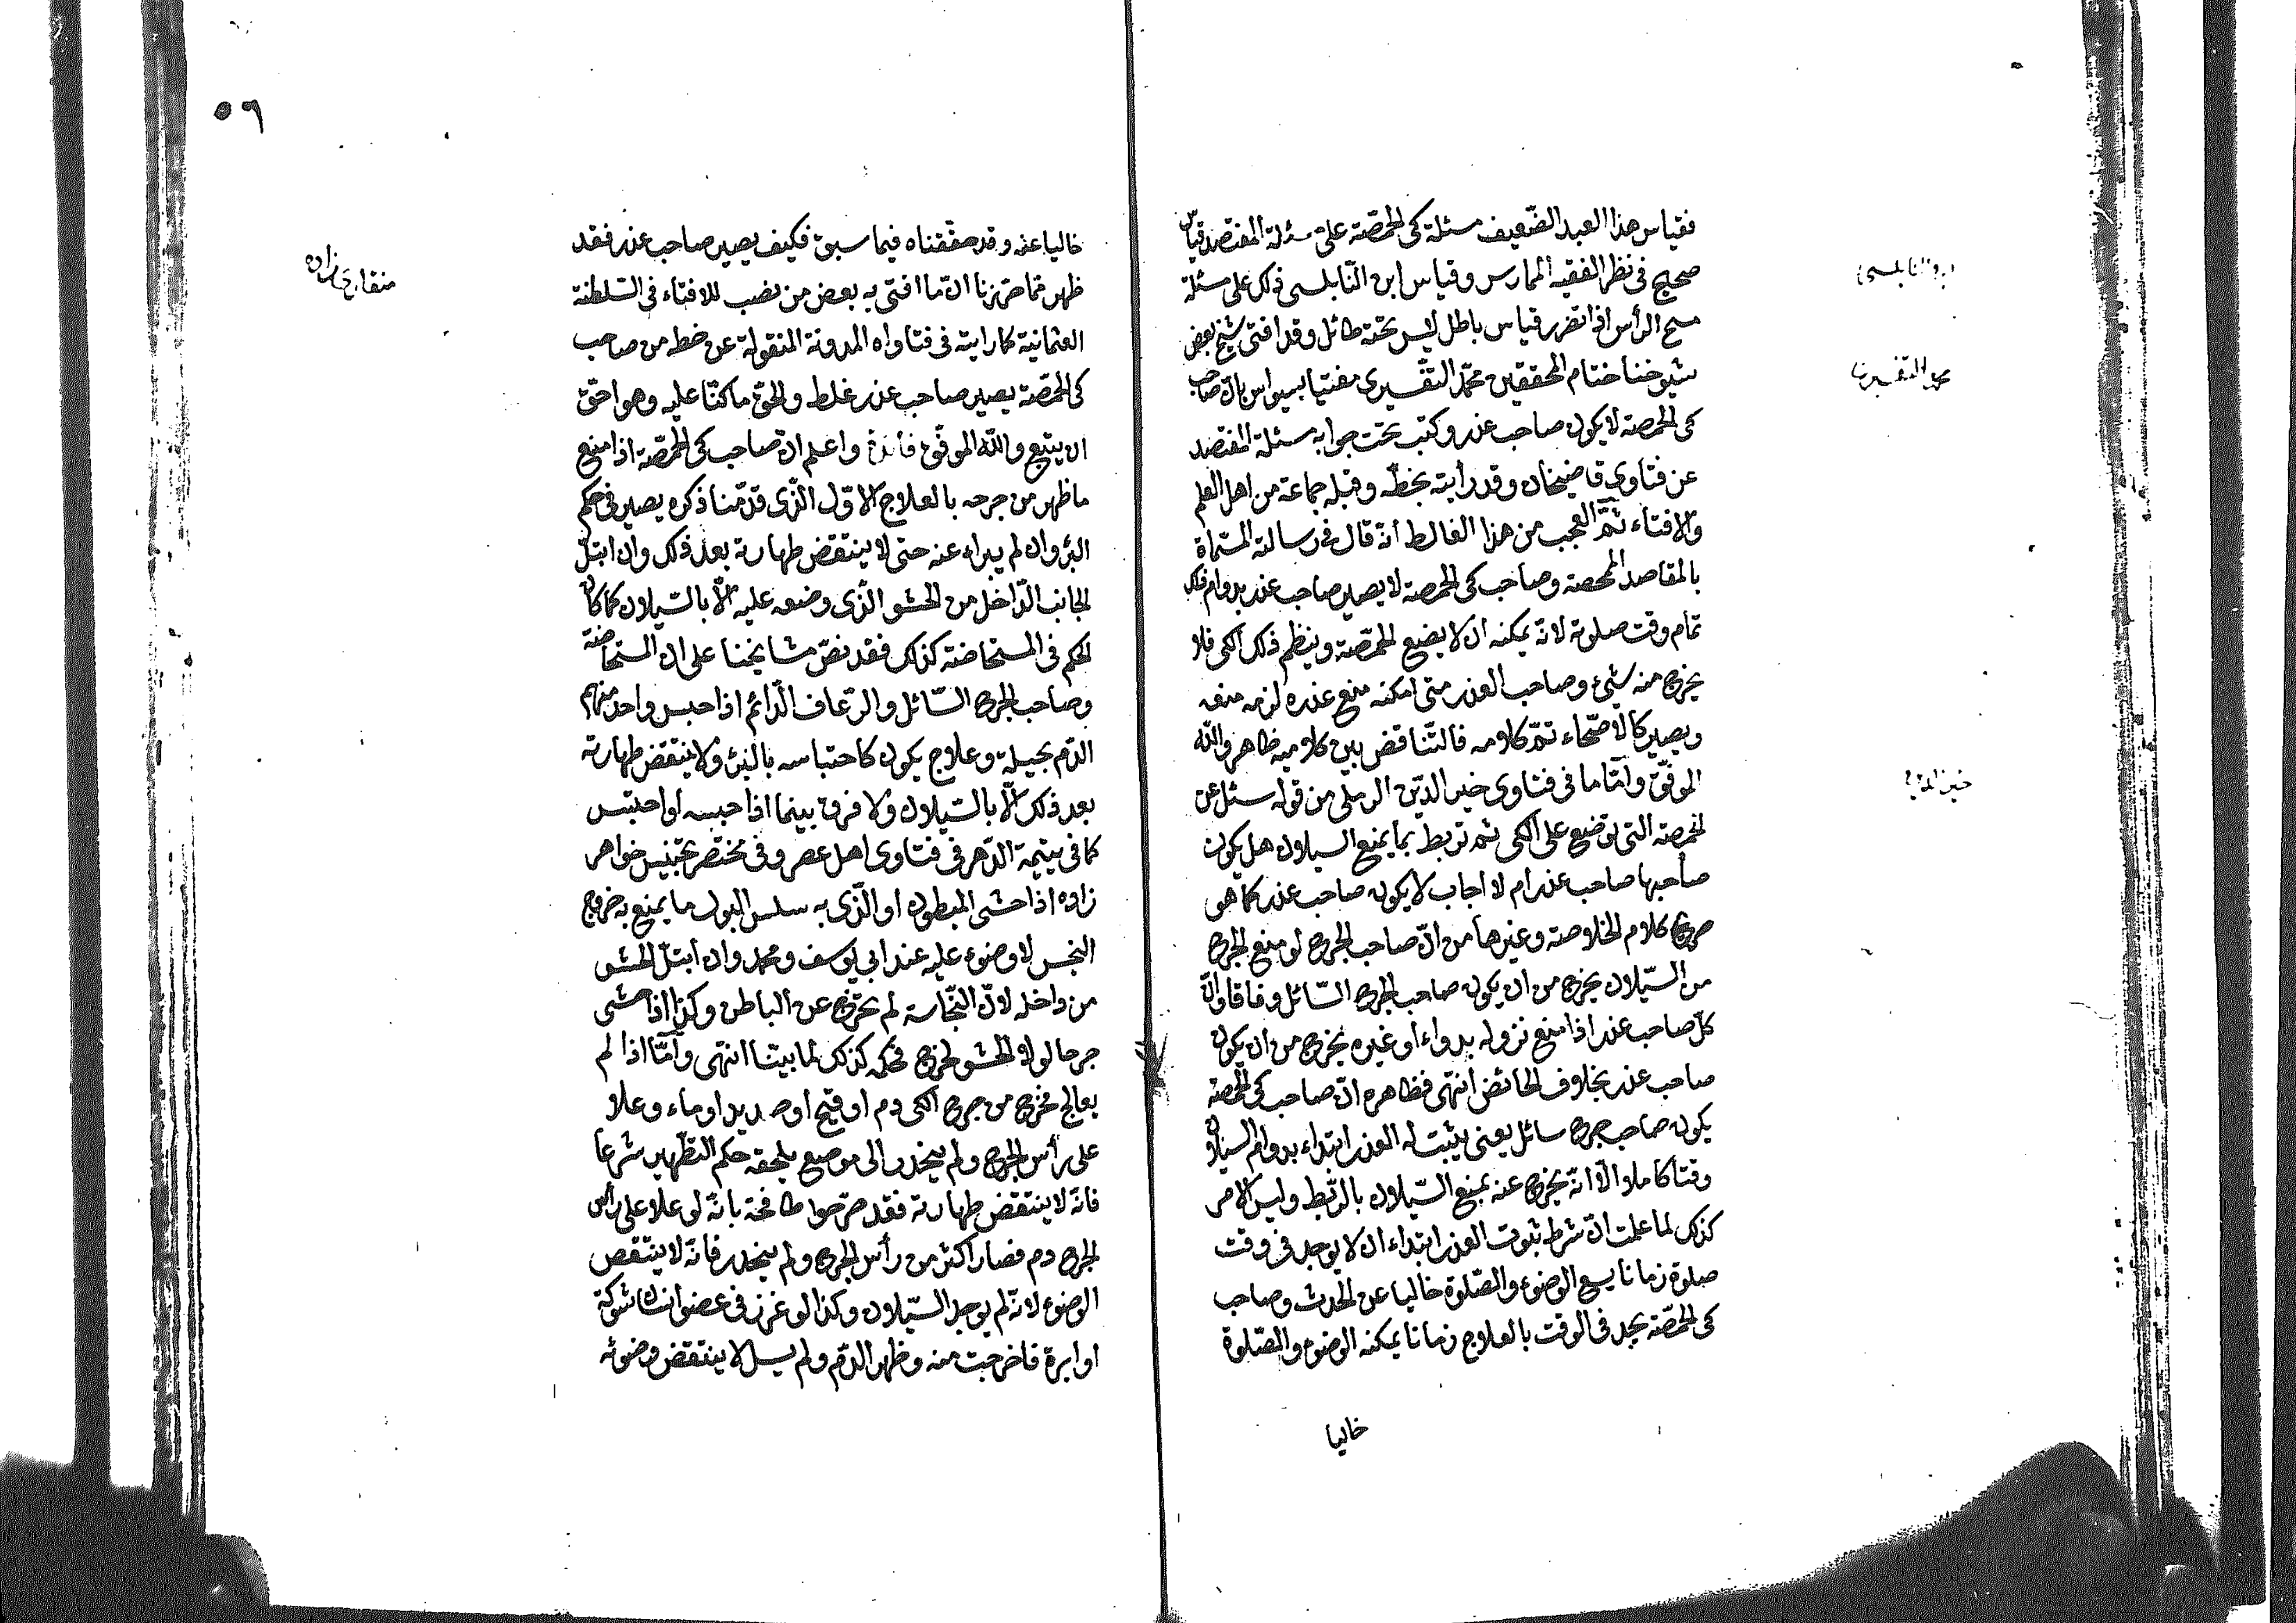 فقياس هذا العبد الضّعيف مسئلة كى الحمّصة على مسئلة المفتصد قياس
صحيح فى نظر الفقيه الممارس وقياس ابن النّابلسى ذلك على مسئلة
مسح الرأس اذا تضرر قياس باطل ليس تحته طائل وقد افتى شيخ بعض
شيوخنا ختام المحققين محمّد التفسيرى مفتيا بسيواس بانّ صاحب
كى الحمصة لا يكون صاحب عذر وكتب تحت جوابه مسئلة المفتصد
عن فتاوى قاضيخان وقد رأيته بخطّه وقبله جماعة من اهل العلم
والافتاء ثمّ العجب من هذا الغالط أنّه قال فى رسالته المسماة
بالمقاصد الممحصة وصاحب كى الحمصة لا يصير صاحب عذر بدوام ذلك
تمام وقت صلوة لانّه يمكنه ان لا يضع الحمّصة وينظم ذلك الكى فلا
يخرج منه شئ وصاحب العذر متى امكنه منع عذره لزمه منعه
ويصير كالاصّحاء تمّ كلامه فالتّناقض بين كلاميه ظاهر والله
الموفّق وامّا ما فى فتاوى خير الدّين الرملى من قوله سئل عن
الحمصة التى توضع على الكى ثم تربط بما يمنع السيلان هل يكون
صاحبها صاحب عذر ام لا اجاب لا يكون صاحب عذر كما هو
صريح كلام الخلاصة وغيرها من انّ صاحب الجرح لو منع الجرح
من السّيلان يخرج من ان يكون صاحب الجرح السّائل وفاقا وانّ
كلّ صاحب عذر اذا منع نزوله بدواء او غيره يخرج من ان يكون
صاحب عذر بخلاف الحائض انتهى فظاهره انّ صاحب كى الحمصة
يكون صاحب جرح سائل يعنى يثبت له العذر ابتداء بدوام السيلان
وقتا كاملا الّا انّه يخرج عنه بمنع السّيلان بالرّبط وليس الامر
كذلك لما علمت انّ شرط ثبوت العذر ابتداء ان لا يوجد فى وقت
صلوة زمانا يسع الوضوء والصّلوة خاليا عن الحدث وصاحب
كى الحمّصة يجد فى الوقت بالعلاج زمانا يمكنه الوضوء والصّلوة
خاليا
ابن النابلسى
محمد التفسيرى
خير الدين
٥٩
خاليا عنه وقد حققناه فيما سبق فكيف يصير صاحب عذر فقد
ظهر ممّا حرّرنا انّ ما افتى به بعض من نصب للافتاء فى السّلطنة
العثمانية كما رايته فى فتاواه المدونة المنقولة عن خطه من صاحب
كى الحمّصة يصير صاحب عذر غلط والحقّ ما كنّا عليه وهو احقّ
ان يتبع والله الموفّق فائدة واعلم انّ صاحب كى الحمّصة اذا منع
ما ظهر من جرحه بالعلاج الاوّل الّذى قدّمنا ذكره يصير فى حكم
البرؤ وان لم يبراء عنه حتى لا ينتقض طهارته بعد ذلك وان ابتلّ
الجانب الدّاخل من الحشو الّذى وضعه عليه الّا بالسّيلان كما كان
الحكم فى المستحاضة كذلك فقد نصّ مشايخنا على ان المستحاضة
وصاحب الجرح السّائل والرّعاف الدّائم اذا حبس واحد منهم
الدّم بحيلة وعلاج يكون كاحتباسه بالبرؤ ولا ينتقض طهارته
بعد ذلك الّا بالسّيلان ولا فرق بينما اذا حبسه او احتبس
كما فى يتيمة الدّهر فى فتاوى اهل عصر وفى مختصر تجنيس خواهر
زاده اذا حشى المبطون او الّذى به سلس البول ما يمنع به خروج
النجس لا وضوء عليه عند ابى يوسف ومحمد وان ابتلّ الحشو
من داخله لانّ النّجاسة لم تخرج عن الباطن وكذا اذا حشى
جرحا لولا الحشو لخرج فحكمه كذلك لما بيّنا انتهى وامّا اذا لم
يعالج فخرج من جرح الكى دم او قيح او صديد او ماء وعلا
على رأس الجرح ولم ينحدر الى موضع يلحقه حكم التطّهير شرعا
فانّه لا ينتقض طهارته فقد صرّحوا طافحة بانّه لو علا على رأس
الجرح دم فصار اكثر من رأس الجرح ولم ينحدر فانّه لا ينتقض
الوضوء لانّه لم يوجد السّيلان وكذا لو غرز فى عضو انسان شوكة
او ابرة فاخرجت منه وظهر الدّم ولم يسل لا ينتقض وضوئه